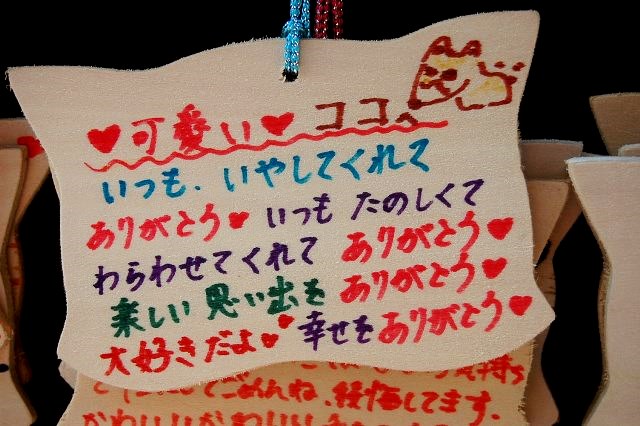 ♥可愛い♥ ココへ
いつも、いやしてくれて
ありがとう♥ いつも たのしくて
わらわせてくれて ありがとう♥
楽しい 思い出を ありがとう♥
大好きだよ♥♥ 幸せをありがとう♥
ごめんね、後悔してます。